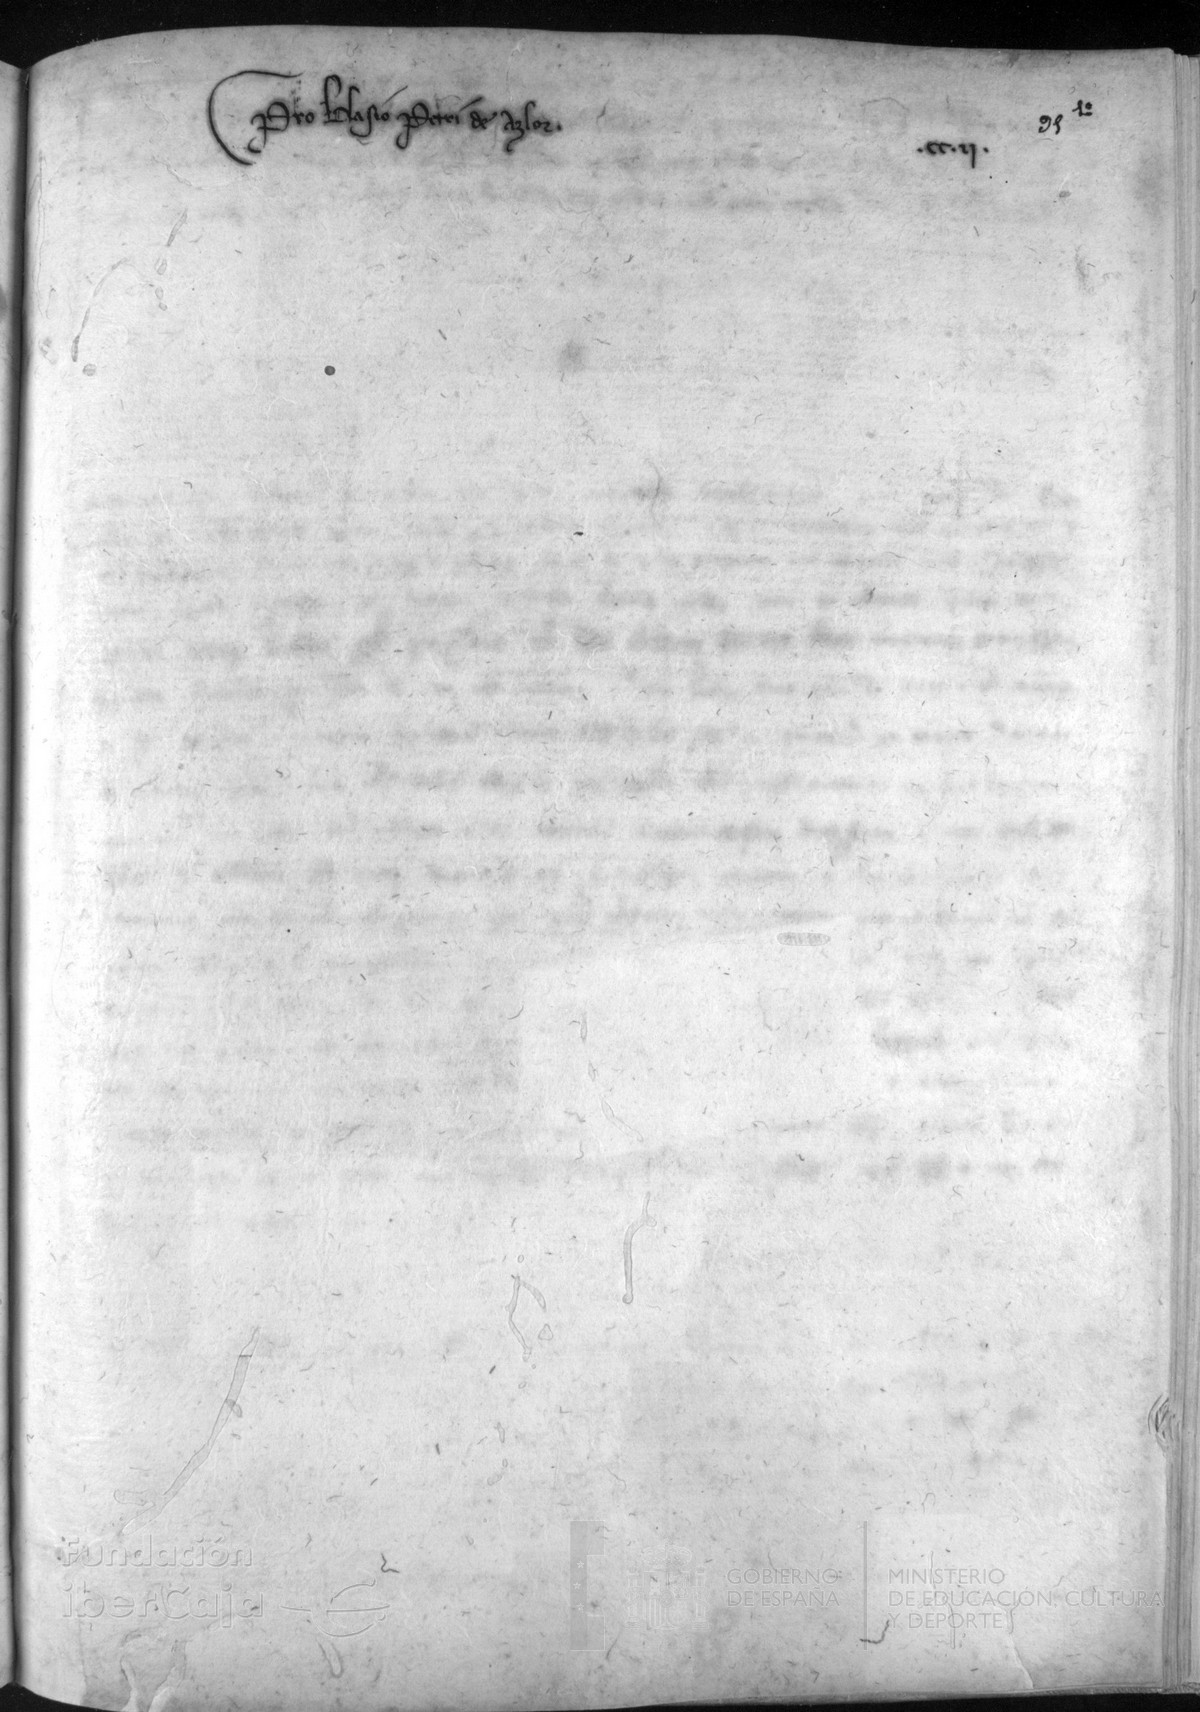 Pro Blasio Petri de Azlor.
91 1º
.cc.ij.
Fundación
iberCaja
GOBIERNO
DE ESPAÑA
MINISTERIO
DE EDUCACIÓN, CULTURA
Y DEPORTE